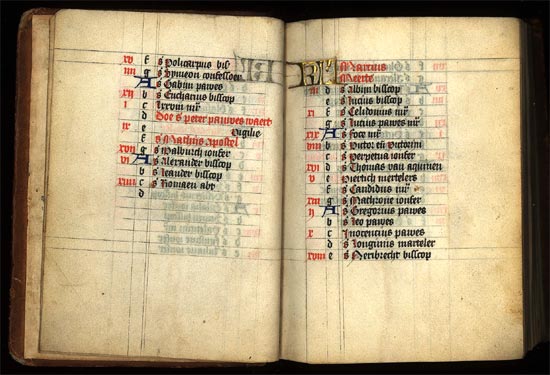 xv f s Policarpus bis
iiii g s Symeon confessoer
A s Gabijn pawes
xii b s Eucharius bisscop
i c mr
d Doe s peter pauwes waert
ix e Vigilie
f s Mathijs Apostel
xvii g s Walburch ionfer
vi A s Alexander bisscop
b s Leander bisscop
xiiii c s Romaen abt
d
KL Marcius
Meerte
iii d s Albijn bisscop
e s Lucius bisscop
xi f s Celidonius mr
g s Lucius pawes mr
xix A s Foce mr
viii b s Victor en Victorin
c s Perpetua ionfer
xvi d s Thomas van aquinen
v e mertelers
f s Candidus mr
xiii g s ionfer
ii A s Gregorius pawes
b s Leo pawes
x c s Inocencius pawes
d s Longinus marteler
xviii e s Heribrecht bisscop